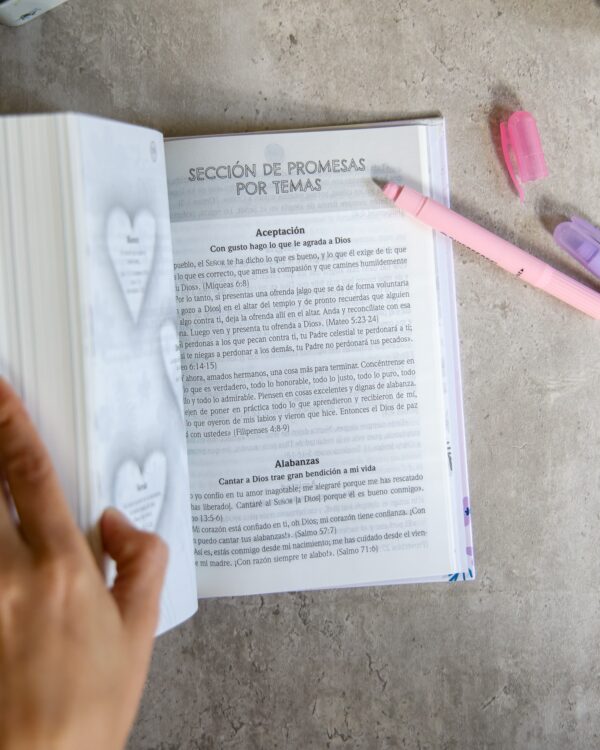 SECCIÓN DE PROMESAS
POR TEMAS
Aceptación
Con gusto hago lo que le agrada a Dios
pueblo, el SEÑOR te ha dicho lo que es bueno, y lo que él exige de ti: que
lo que es correcto, que ames la compasión y que camines humildemente
Dios». (Miqueas 6:8)
Por lo tanto, si presentas una ofrenda [algo que se da de forma voluntaria
gozo a Dios] en el altar del templo y de pronto recuerdas que alguien
algo contra ti, deja la ofrenda allí en el altar. Anda y reconcílíate con esa
Luego ven y presenta tu ofrenda a Dios». (Mateo 5:23-24)
perdonas a los que pecan contra ti, tu Padre celestial te perdonará a ti;
te niegas a perdonar a los demás, tu Padre no perdonará tus pecados».
6:14-15)
ahora, amados hermanos, una cosa más para terminar. Concéntrense en
lo que es verdadero, todo lo honorable, todo lo justo, todo lo puro, todo
y todo lo admirable. Piensen en cosas excelentes y dignas de alabanza.
de poner en práctica todo lo que aprendieron y recibieron de mí,
lo que oyeron de mis labios y vieron que hice. Entonces el Dios de paz
con ustedes» (Filipenses 4:8-9)
Alabanzas
Cantar a Dios trae gran bendición a mi vida
yo confío en tu amor inagotable; me alegraré porque me has rescatado
has liberado]. Cantaré al SEÑOR [a Dios] porque él es bueno conmigo».
13:5-6)
Mi corazón está confiado en ti, oh Dios; mi corazón tiene confianza. ¡Con
puedo cantar tus alabanzas!». (Salmo 57:7)
Así es, estás conmigo desde mi nacimiento; me has cuidado desde el vien-
mi madre. ¡Con razón siempre te alabo!». (Salmo 71:6)